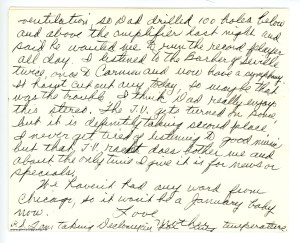 ventilation so Dad drilled 100 holes below
and above the amplifier last night and
said he wanted me to run the record player
all day. I listened to the Barber of Seville
twice, once to Carmen and now have a symphony.
It hasn't cut out any today, so maybe that
was the trouble. I think Dad really enjoys
this stereo. The T.V. gets turned on some,
but it is definitely taking second place.
I never get tired of listening to good music,
but that T.V. racket does bother me and
about the only time I give it is for news or
specials.
We haven't had any word from
Chicago, so it won't be a January baby
now. Love
P.S. Fran taking Declomycin Mother
temperature.